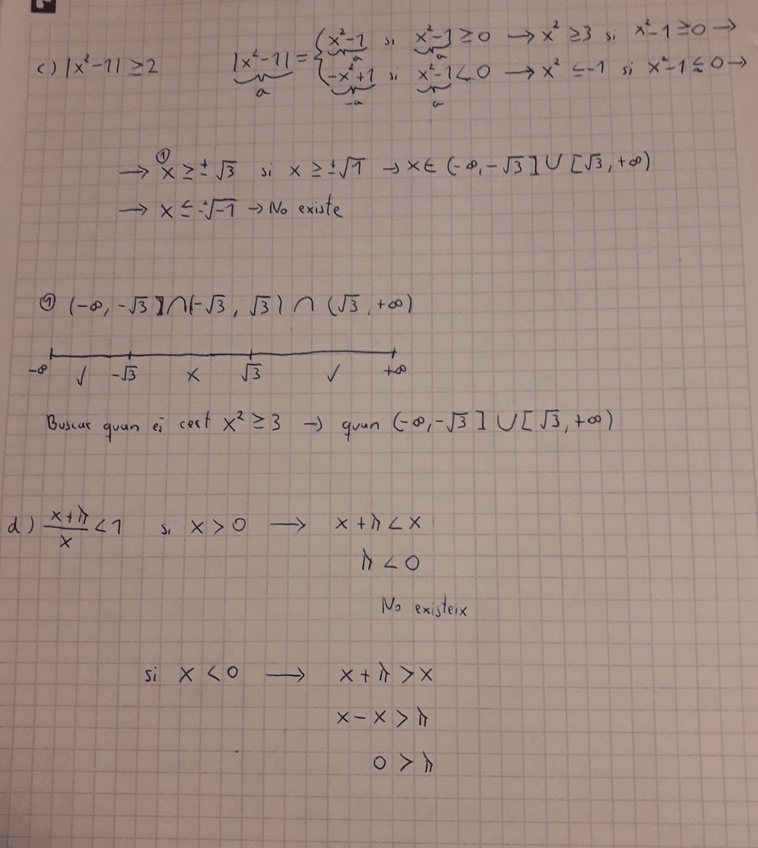 c) |x²-1| ≥ 2   |x²-1| = { x²-1 si x²-1 ≥ 0 → x² ≥ 3 si x²-1 ≥ 0 →
a a a
-x²+1 si x²-1 < 0 → x² ≤ -1 si x²-1 ≤ 0 →
-a a
① → x ≥ ±√3 si x ≥ ±√1 → x ∈ (-∞, -√3] ∪ [√3, +∞)
→ x ≤ ±√-1 → No existe
① (-∞, -√3] ∩ (-√3, √3) ∩ (√3, +∞)
-∞ ✓ -√3 x √3 ✓ +∞
Buscar quan és cert x² ≥ 3 → quan (-∞, -√3] ∪ [√3, +∞)
d) x+π/x < 1 si x > 0 → x + π < x
π < 0
No existeix
si x < 0 → x + π > x
x - x > π
0 > π